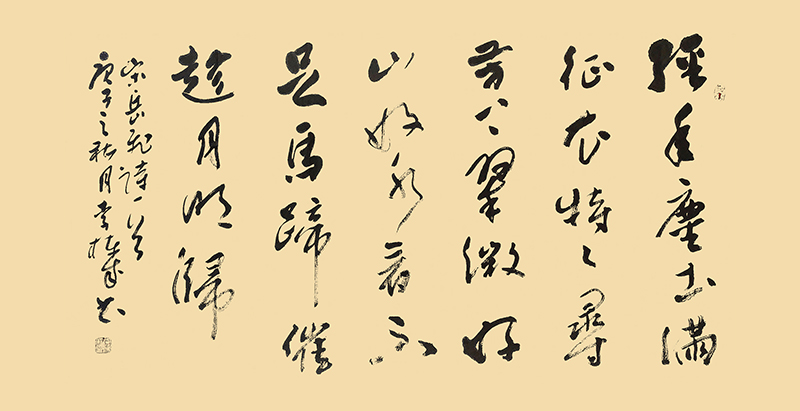 經年塵土滿
征衣特〻尋
芳上翠微好
山好水看不
足馬蹄催
趁月明歸
宋岳飛詩一首
庚子之秋月书